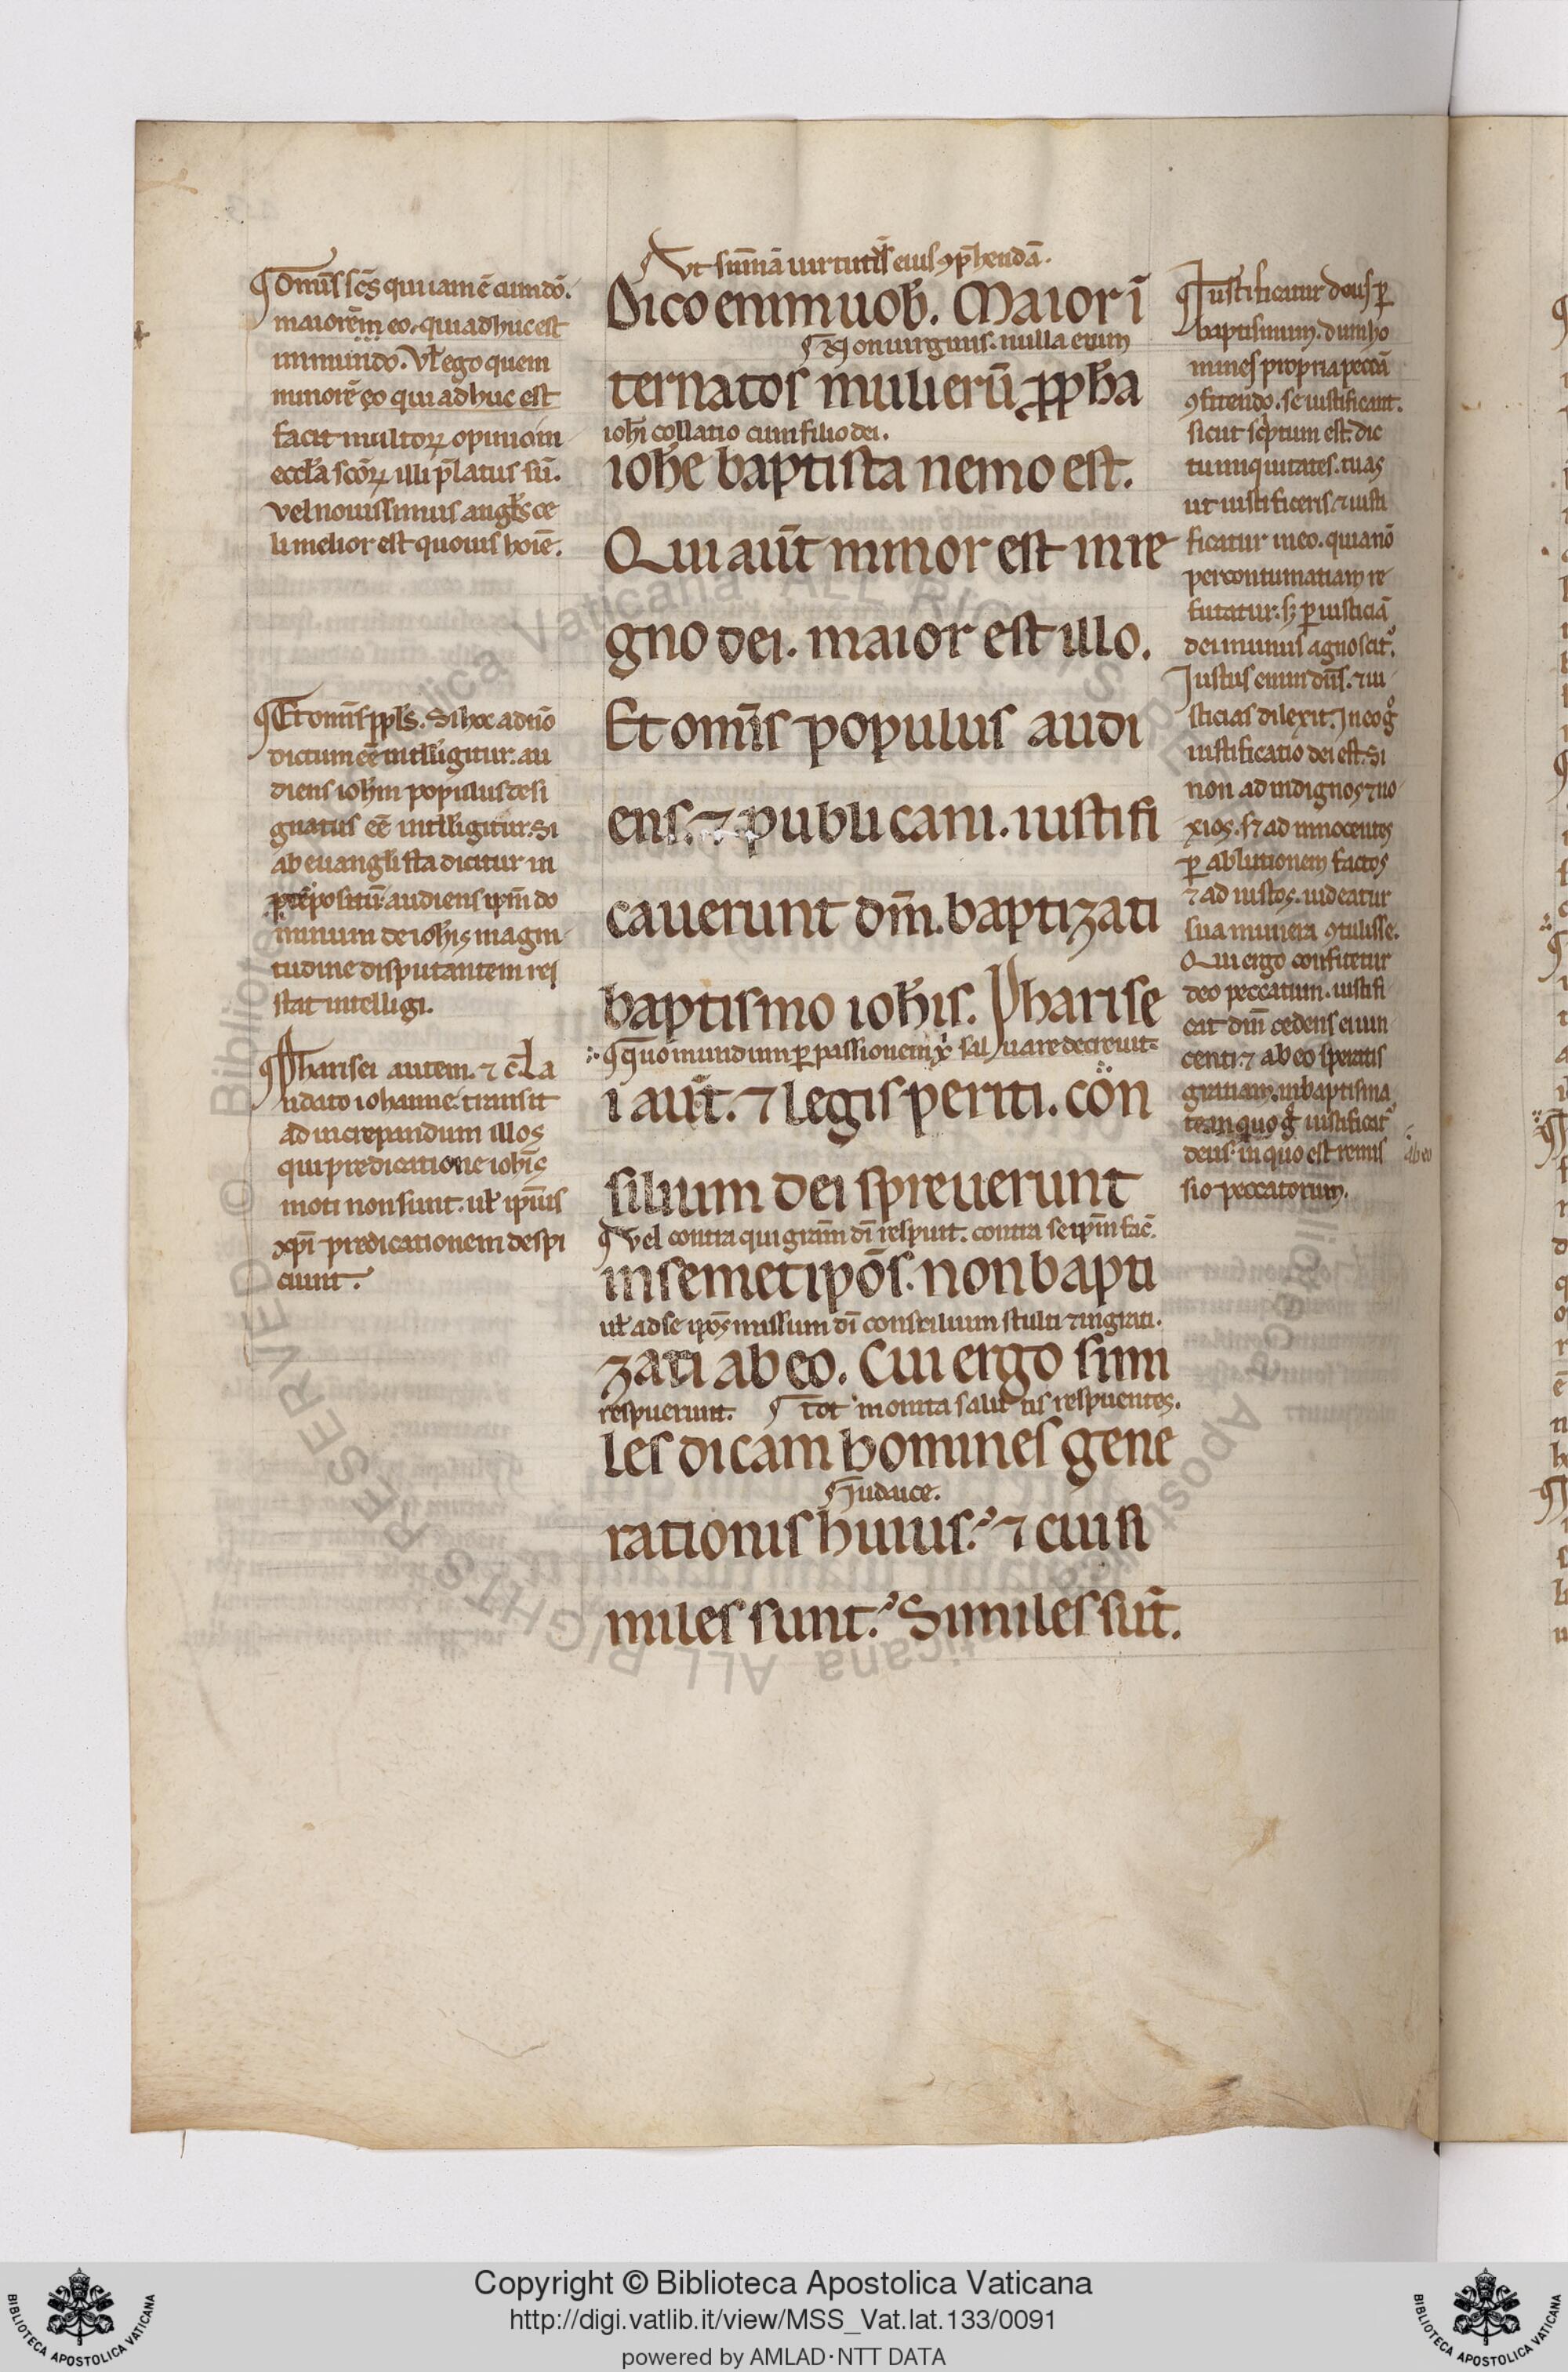 Omīs sc̄s qui iam ē cum dō.
maior ē in eo. qui adhuc est
in mundo. Vł ego quem
minorē eo qui adhuc est
facit multoꝝ opinio in
eccła scōꝝ illi p̄latus sū.
vel nouissimus angłs ce
li melior est quouis hoīe.
Et omīs ppłs. Si hoc a dn̄o
dictum eē intelligitur. au
diens ioħm populus desi
gnatus eē intelligitur. Si
ab euanglista dicitur in
positū audiens ip̄m do
minum de ioħis magni
tudine disputantem res
stat intelligi.
Pharisei autem. ⁊ c̄. La
udato iohanne. transit
ad increpandum illos
qui predicatione ioħis
moti non sunt. uł ipsius
xp̄i predicationem despi
ciunt.
Vt sum̄ā uirtutis eius ꝯp̄hendā.
Dico enim uob̄. Maior ī
Non uirginis. nulla enim
ter natos mulierū ꝓpħa
ioħi collatio cum filio dei.
ioħe baptista nemo est.
Qui aut̄ minor est in re
gno dei. maior est illo.
Et omīs populus audi
ens. ⁊ publicani. iustifi
cauerunt dm̄. baptizati
baptismo ioħis. Pharise
quo mundum ꝑ passionem x̄ saluare decreuit
i aut̄. ⁊ legis periti. con
silium dei spreuerunt
Vel contra qui grām dī respuit. contra se ip̄m fac̄.
in semet ipōs. non bapti
uł ad se ipōs missum dī consilium stulti ⁊ ingrati.
zati ab eo. Cui ergo simi
respuerunt. Tot monita salutis respuentes.
les dicam homines gene
Iudaice.
rationis huius? ⁊ cui si
miles sunt? Similes sūt.
Iustificatur deus ꝑ
baptismum. dum ho
mines propria peccā
ꝯfitendo. se iustificant.
sicut scriptum est. dic
tu iniquitates tuas
ut iustificeris ⁊ iusti
ficatur in eo. quia nō
per contumatiam re
futatur. sꝫ ꝑ iusticiā
dei munus agnoscit᷒.
Iustus enim dn̄s. ⁊ iu
sticias dilexit. In eo gͦ
iustificatio dei est. Si
non ad indignos ⁊ no
xios. sꝫ ad innocentes
ꝑ ablutionem factos
⁊ ad iustos. uideatur
sua munera ꝯtulisse.
Qui ergo confitetur
deo peccatum. iustifi
cat dm̄ cedens ei uin
centi. ⁊ ab eo speratis
gratiam. in baptisma
te
quo gͦ iustificat᷒
deus. in quo est remis
ab eo
sio peccatorum.
Copyright © Biblioteca Apostolica Vaticana
http://digi.vatlib.it/view/MSS_Vat.lat.133/0091
powered by AMLAD·NTT DATA
BIBLIOTECA APOSTOLICA VATICANA
BIBLIOTECA APOSTOLICA VATICANA